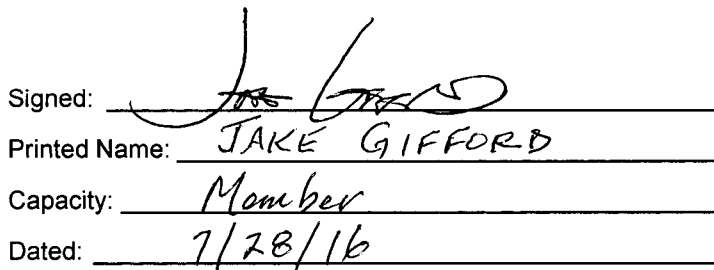 Signed: Jake Gifford
Printed Name: JAKE GIFFORD
Capacity: Member
Dated: 7/28/16